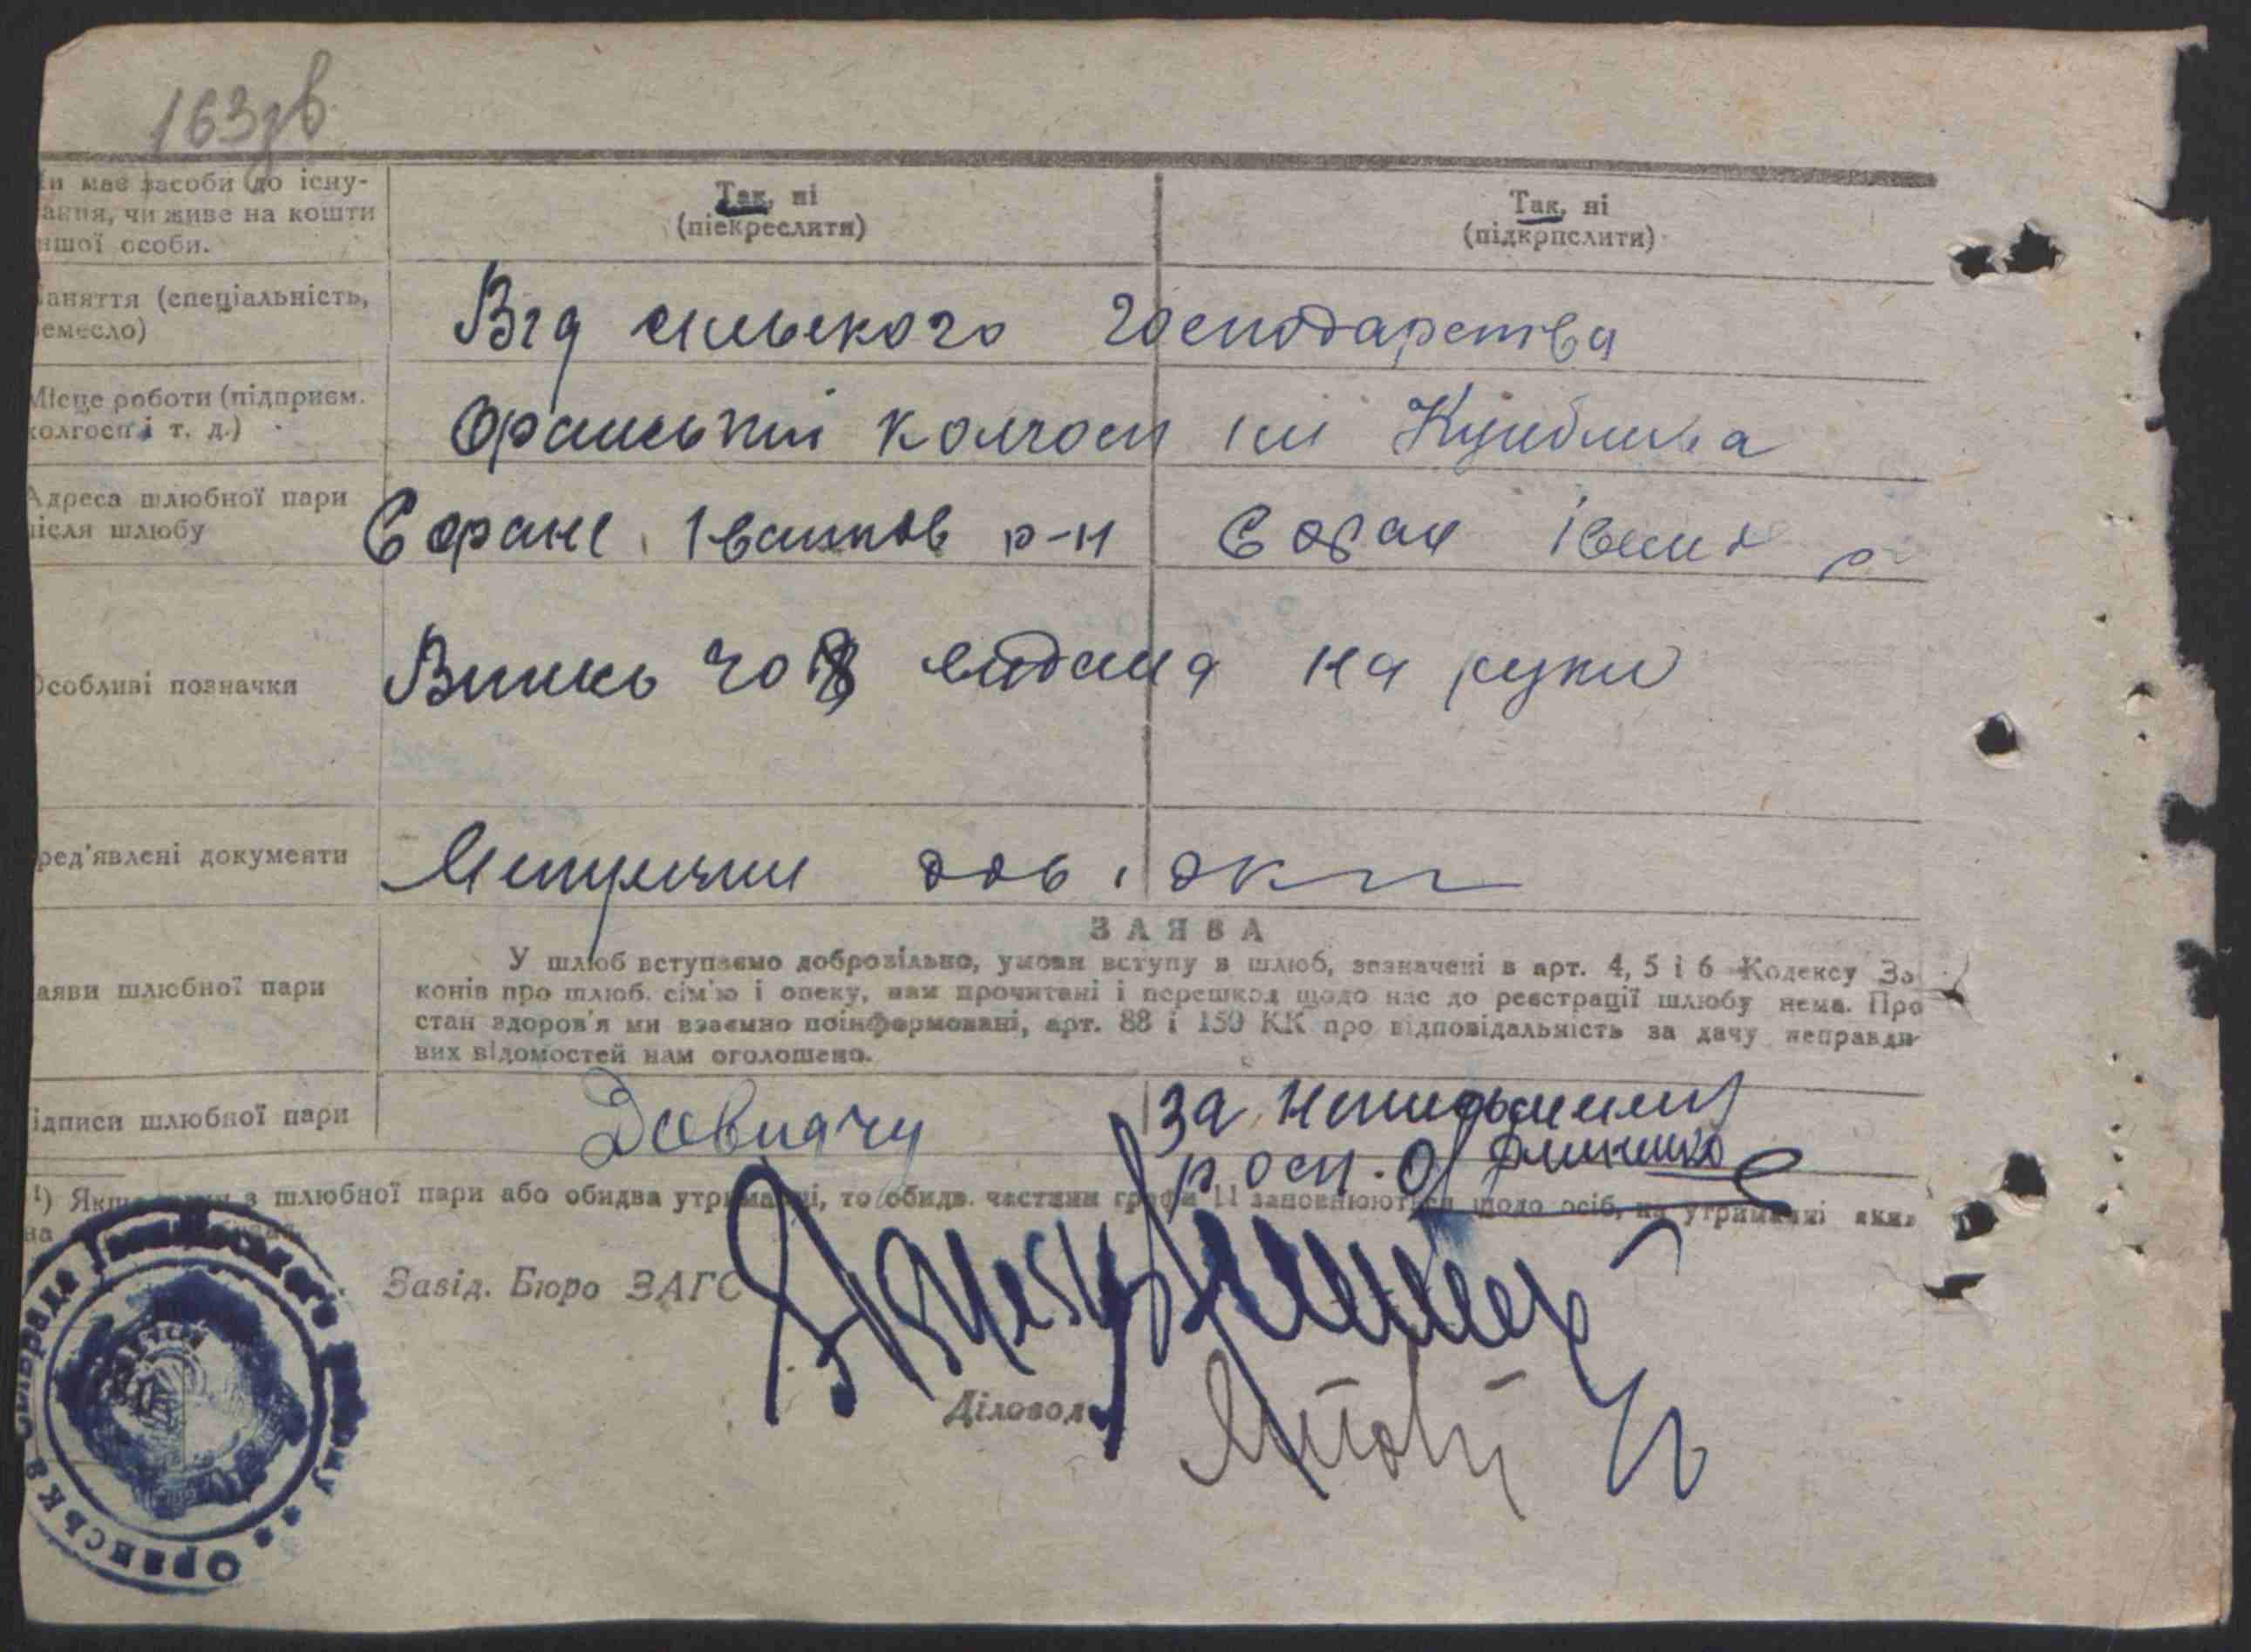 163зв
ни має засоби до існу-
ання, чи живе на кошти
ншої особи.
Так, ні
(піекреслити)
Так, ні
(підкрпслити)
аняття (спеціальність,
емесло)
Від сільського господарства
Місце роботи (підприєм.
колгосп і т. д.)
Оранський колгосп ім Куйбишева
Адреса шлюбної пари
після шлюбу
С Оране Іванков р-н
С Оране
Особливі позначки
видана на руки
ред'явлені документи
Метричні дов.
ЗАЯВА
аяви шлюбної пари
У шлюб вступаємо добровільно, умови вступу в шлюб, зазначені в арт. 4, 5 і 6 Кодексу За
конів про шлюб. сім'ю і опеку, нам прочитані і перешкод щодо нас до реєстрації шлюбу нема. Про
стан здоров'я ми взаємно поінформовані, арт. 88 і 159 КК про відповідальність за дачу неправди
вих відомостей нам оголошено.
ідписи шлюбної пари
за неписьменну
росп.
¹) Якщо з шлюбної пари або обидва утриманці, то обидв. частини графи 11 заповнюються щодо осіб, на утриманні яких
на
Завід. Бюро ЗАГС
Діловод
Оранська сільрада